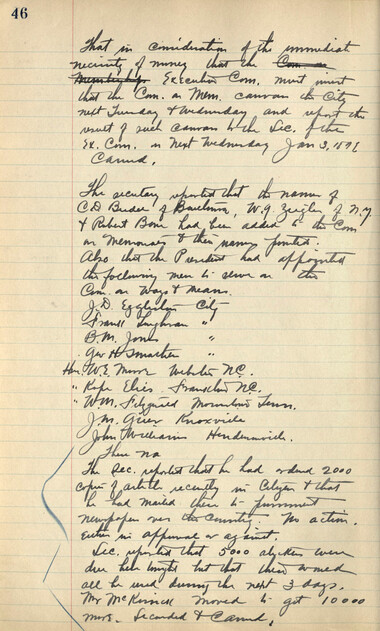 46
That in consideration of the immediate
necissity of money that the Com on
Membership Executive Com. must insist
that the Com. on Mem. canvass the City
next Tuesday & Wednesday and report the
result of such canvass to the Sec. of the
Ex. Com. on Next Wednesday Jan 3, 18
Carried.
The secretary reported that the names of
C D Beadle of Biltmore, W. J. Zeigler of N.Y.
& Robert Bone had been added to the Com
on Memorial & their names printed.
Also that the President had appointed
the following men to serve on the
Com. on Ways & Means.
J. D. Eggleston City
Frank Loughran "
B. M. Jones "
Geo H Smathers "
Hon. W. E. Moore Webster N.C.
" Kope Elias Franklin N.C.
" Wm. Fitzgerald Morristown Tenn.
J. M. Greer Knoxville
John Williams Hendersonville.
There no
The Sec. reported that he had ordered 2000
copies of article recently in Citizen & that
he had mailed them to prominent
newspapers over the country. No action.
Either in approval or against.
Sec. reported that 5000 stickers were
due here tonight but that these would
all be used during the next 3 days.
Mr McKissick moved to get 10000
more. Seconded & Carried.